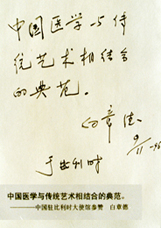 中国医学与传
统艺术相结合
的典范。
白章德
9/11-95
于比利时
中国医学与传统艺术相结合的典范。
——中国驻比利时大使馆参赞 白章德